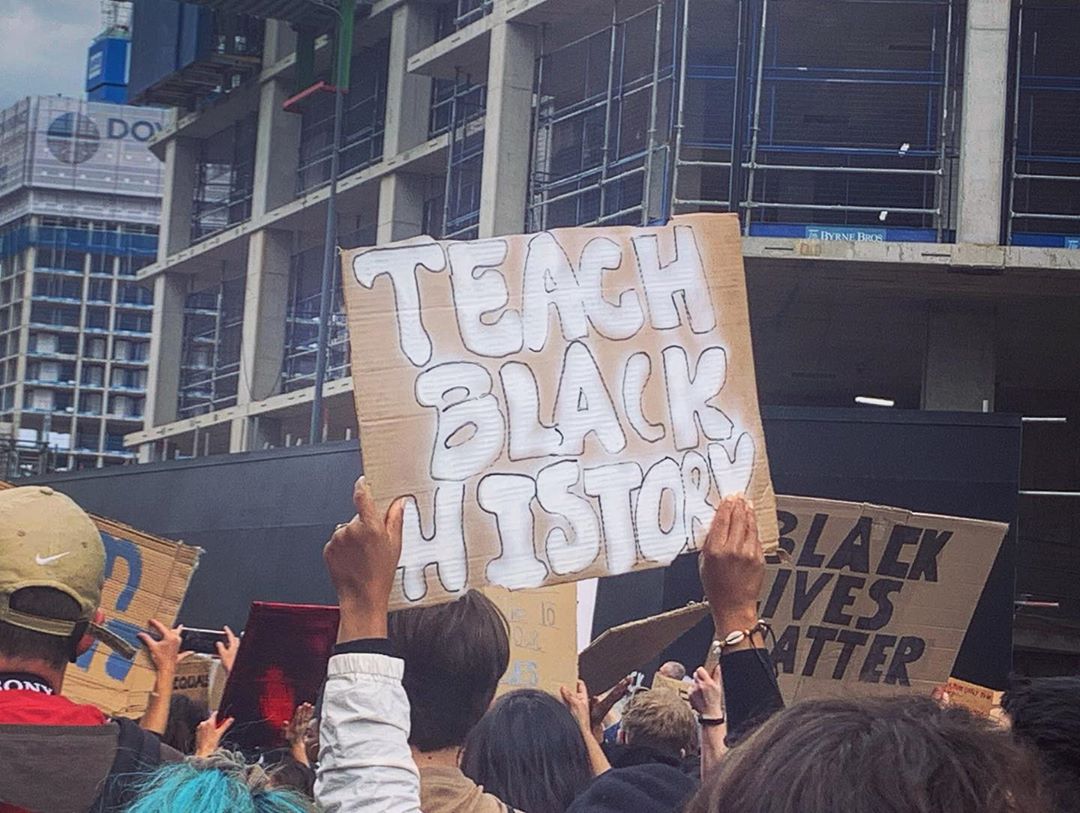 DO
BYRNE BROS
TEACH
BLACK
HISTORY
BLACK
LIVES
MATTER
EQUALS